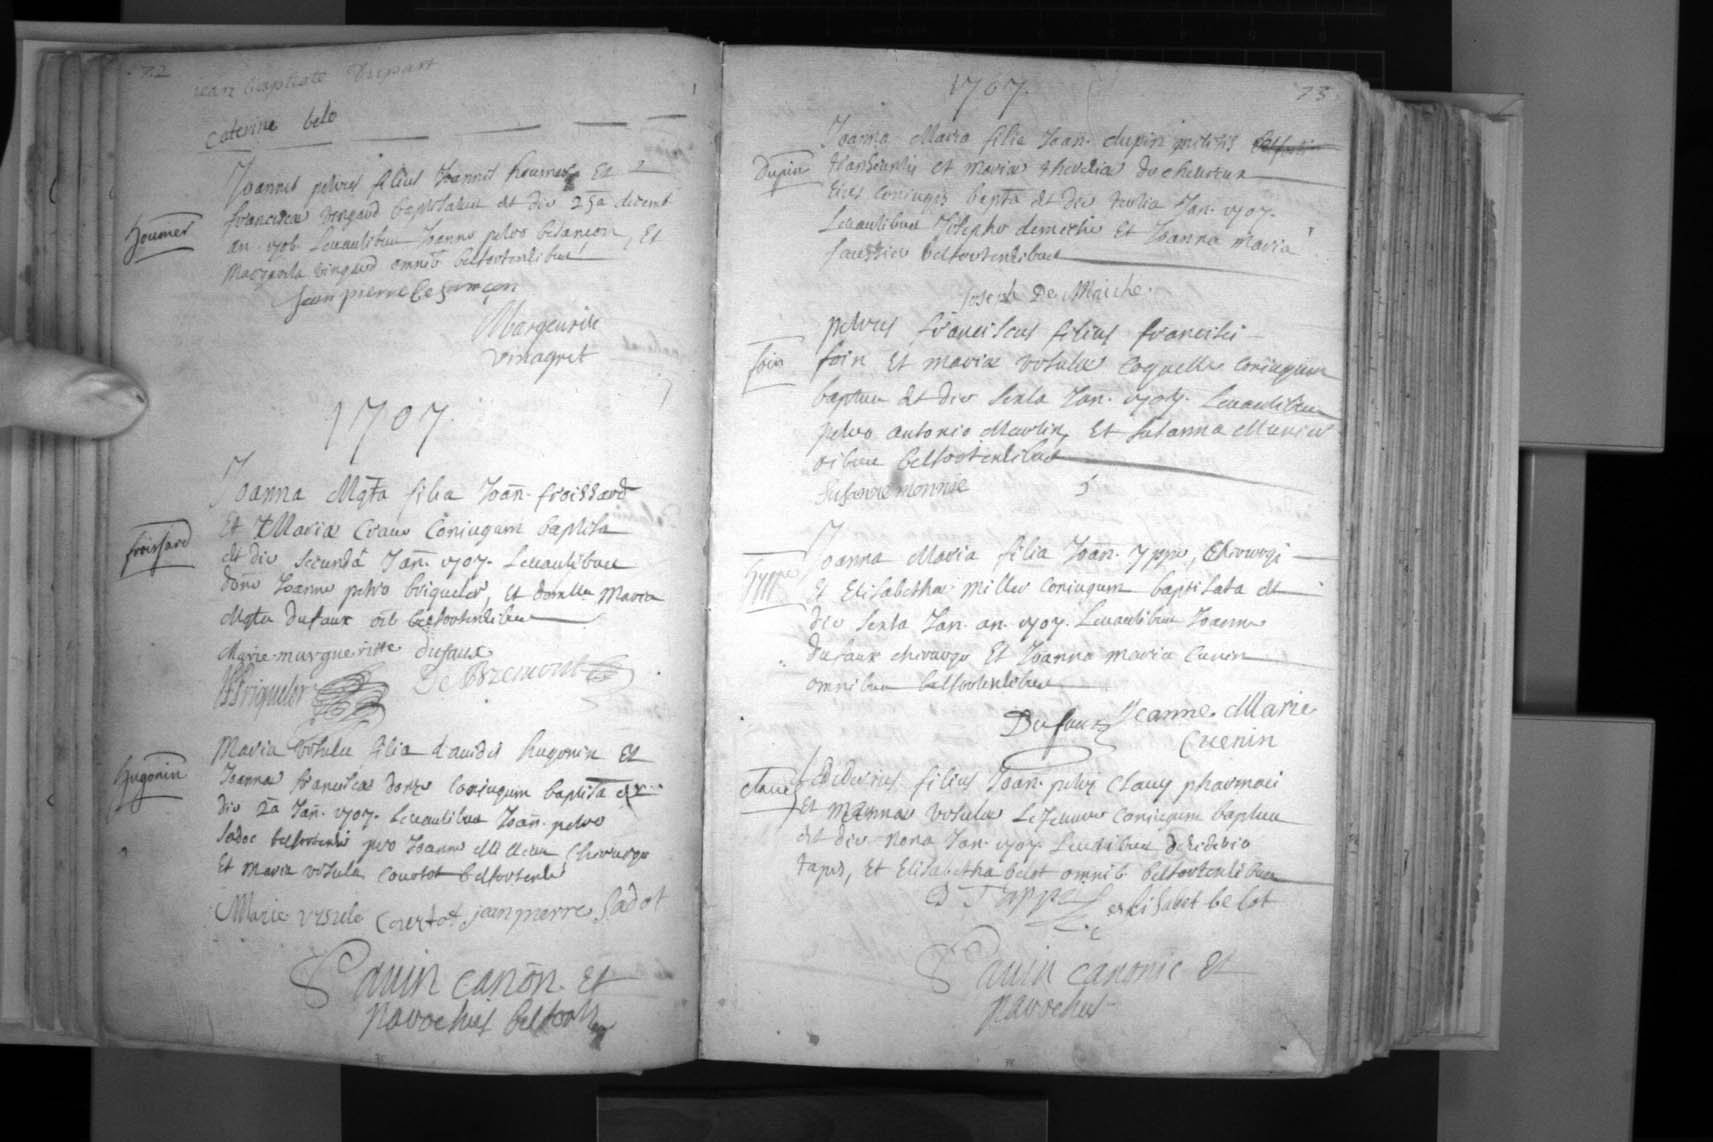 72
jean baptiste Dupart
caterine belo
Houmet
Joannes petrus filius Joannis houmet Et
francisca vingard baptisatus est die 25a decemb
an. 1706. Levantibus Joanne petro besançon, Et
Margarita vingard omnib belfortensibus
Jean pierre besançon
Margeurite
vinagret
1707.
froissard
Joanna Mgta filia Joan. froissard
Et Maria Craue Coniugum baptisa
est die secunda Jan. 1707. Levantibus
dono Joanne petro briqueler, et domlla Maria
Mgta Dufaux oib belfortensibus
Marie murgueritte dufaux
Briqueler De Bzemont
Hugonin
Maria Ursula filia davidis hugonin Et
Joanna francisca Coniugum baptisa est
die 2a Jan. 1707. Levantibus Joan. petro
Sadoc belfortensis pro Joanne Chirurgo
Et Maria Ursula Courtot belfortensi
Marie ursule Courtot jean pierre Sadot
canon. Et
parochus belfort
1707.
73
Dupin
Joanna Maria filia Joan. dupin militis
transeuntis et Maria thevelia ducheureux
Eius Coniugis bapta est die tertia Jan. 1707.
Levantibus Josepho demeiche Et Joanna Maria
belfortensibus
Joseph De Maiche.
foin
petrus franciscus filius francisci
foin Et Maria Ursula Coquelle Coniugum
baptus est die sexta Jan. 1707. Levantibus
petro antonio Martin, Et Susanna Munier
oibus belfortensibus
Susanne monnie
Hyppe
Joanna Maria filia Joan. yppe, Chirurgi
Et Elisabetha Miller Coniugum baptisata est
die sexta Jan. an. 1707. Levantibus Joanne
Dufaux chirurgo Et Joanna Maria Cuenin
omnibus belfortensibus
Dufaux Jeanne Marie
Cuenin
Claué
Desiderius filius Joan. petri Clauy pharmaci
Et Ursula Coniugum baptus
est die nona Jan. 1707. Levantibus desiderio
tapes, Et Elisabetha belot omnib belfortensibus
D Tappe elisabet belot
canonic et
parochus